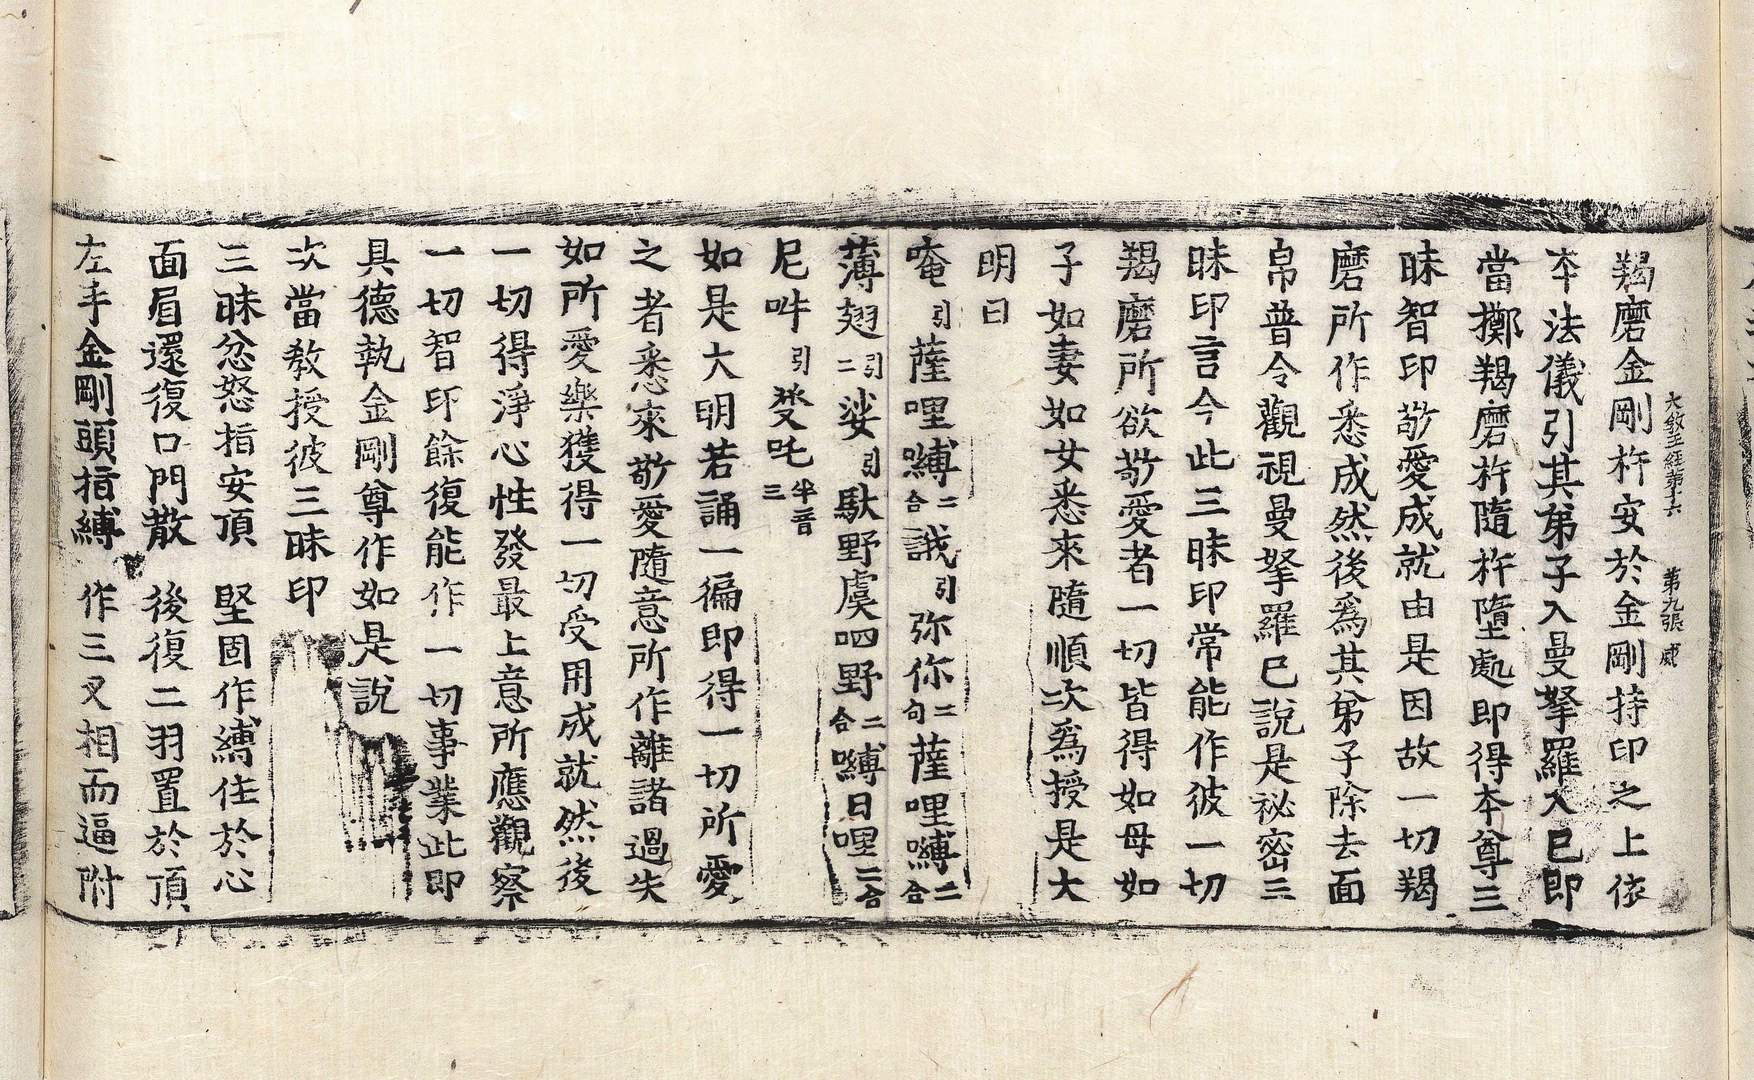 大敎王經第十六 第九張 咸
羯磨金剛杵安於金剛持印之上依
本法儀引其弟子入曼拏羅入已即
當擲羯磨杵隨杵墮處即得本尊三
昧智印敬愛成就由是因故一切羯
磨所作悉成然後爲其弟子除去面
帛普令觀視曼拏羅已說是祕密三
昧印言今此三昧印常能作彼一切
羯磨所欲敬愛者一切皆得如母如
子如妻如女悉來隨順次爲授是大
明曰
唵引薩哩嚩二合誐引弥你二句薩哩嚩二合
薄翅引二娑引馱野虞呬野二合嚩日哩二合
尼吽引癹吒半音三
如是大明若誦一徧即得一切所愛
之者悉來敬愛隨意所作離諸過失
如所愛樂獲得一切受用成就然後
一切得淨心性發最上意所應觀察
一切智印餘復能作一切事業此即
具德執金剛尊作如是說
次當教授彼三昧印
三昧忿怒指安頂 堅固作縛住於心
面眉還復口門散 後復二羽置於頂
左手金剛頭指縛 作三叉相而逼附